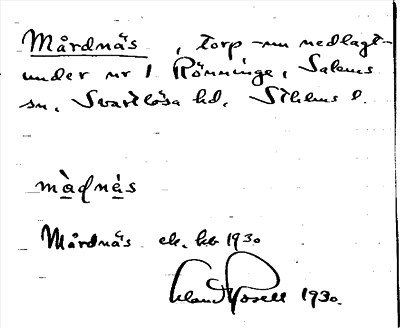 Mårdnäs, torp – nu nedlagt –
under nr 1 Rönninge, Salems
sn. Svartlösa hd. Sthlms l.
màɖnàs
Mårdnäs ek. kb 1930
Rosell 1930.